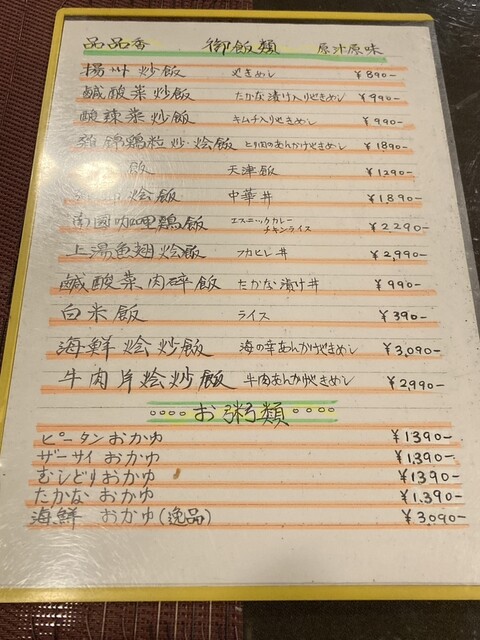 品品香 御飯類 原汁原味
揚州炒飯 やきめし ¥890-
鹹酸菜炒飯 たかな漬け入りやきめし ¥990-
酸辣菜炒飯 キムチ入りやきめし ¥990-
錦鶏粒炒烩飯 とり肉のあんかけやきめし ¥1890-
飯 天津飯 ¥1290-
烩飯 中華丼 ¥1890-
南國咖哩鶏飯 エスニックカレーチキンライス ¥2290-
上湯魚翅烩飯 フカヒレ丼 ¥2,990-
鹹酸菜肉碎飯 たかな漬け丼 ¥990-
白米飯 ライス ¥390-
海鮮烩炒飯 海の幸あんかけやきめし ¥3,090-
牛肉片烩炒飯 牛肉あんかけやきめし ¥2,990-
お粥類
ピータンおかゆ ¥1390-
ザーサイおかゆ ¥1,390-
むしどりおかゆ ¥1390-
たかなおかゆ ¥1,390-
海鮮おかゆ(逸品) ¥3090-